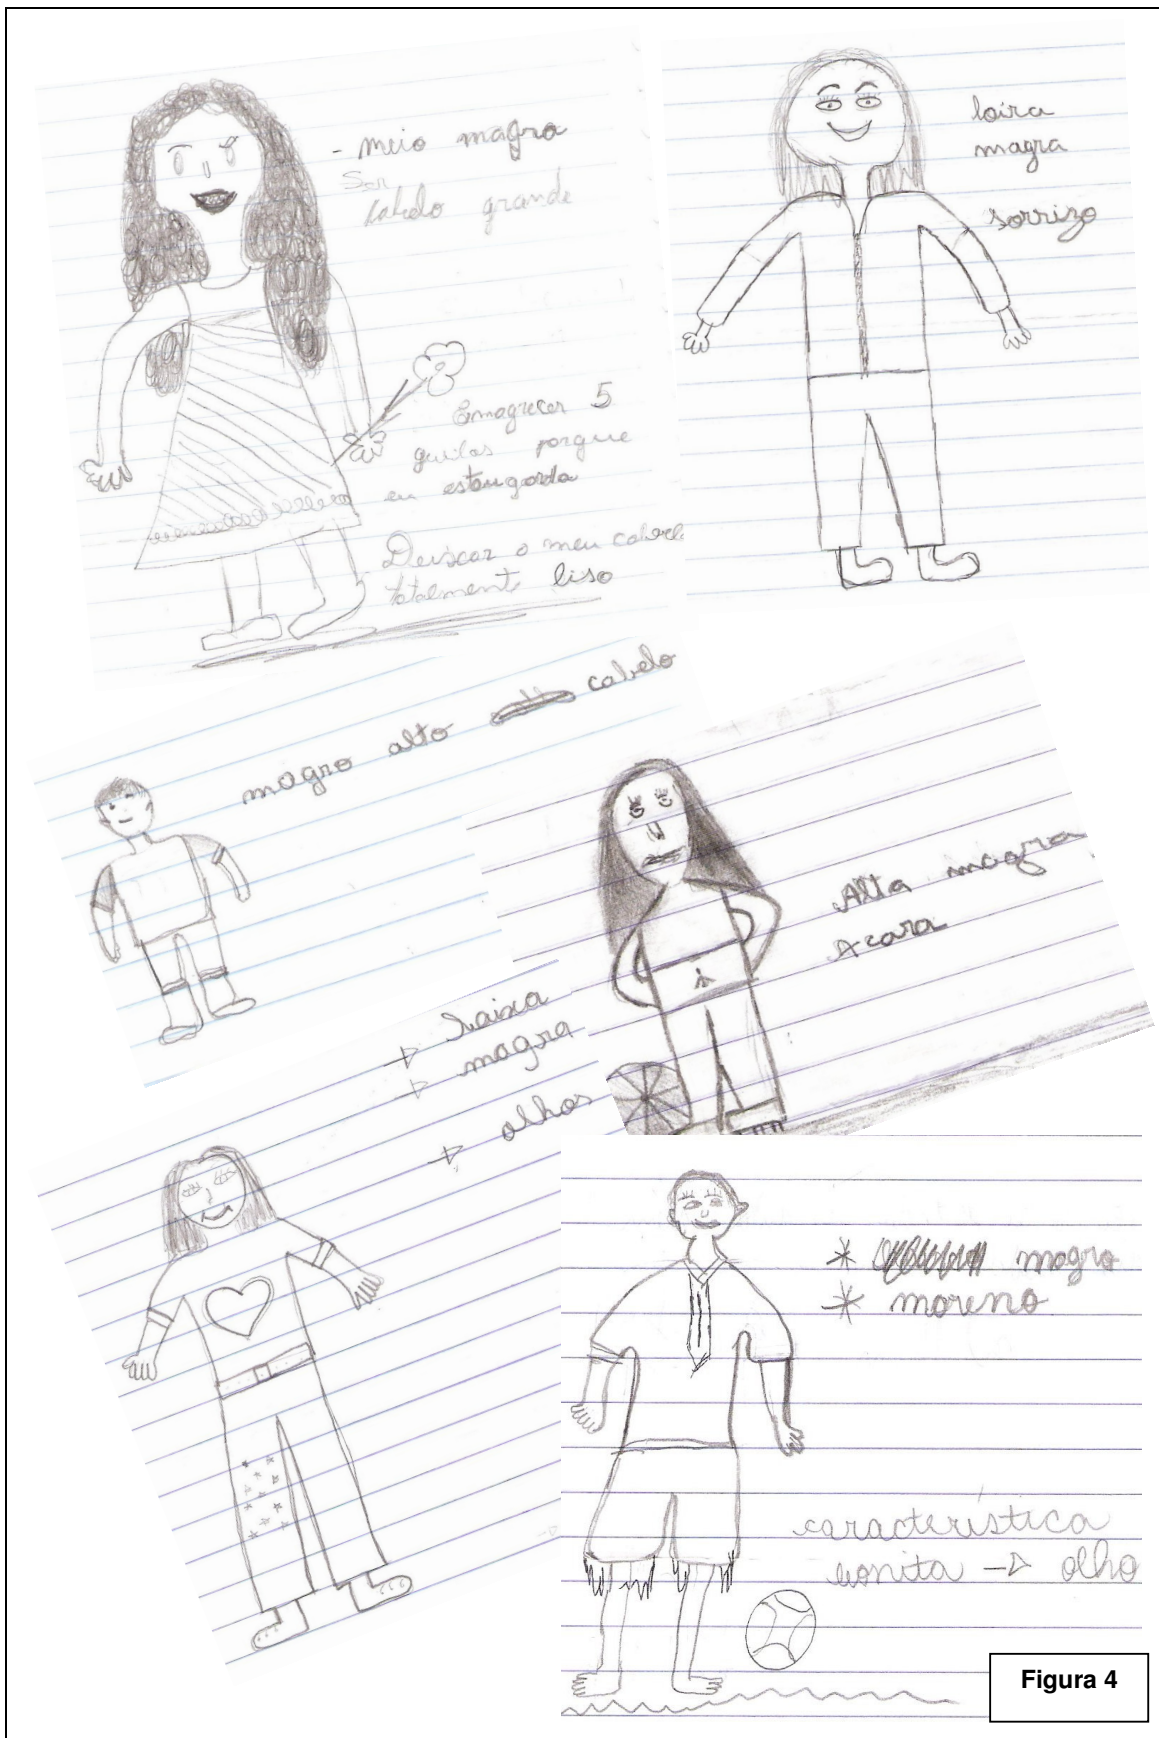 - meio magra
Ser
cabelo grande
Emagrecer 5
quilos porque
eu estou gorda
Deiscar o meu cabelo
totalmente liso
loira
magra
sorrizo
magro alto cabelo
Alta magra
A cara
→ baixa
→ magra
→ olhos
* magro
* moreno
característica
bonita → olho
Figura 4